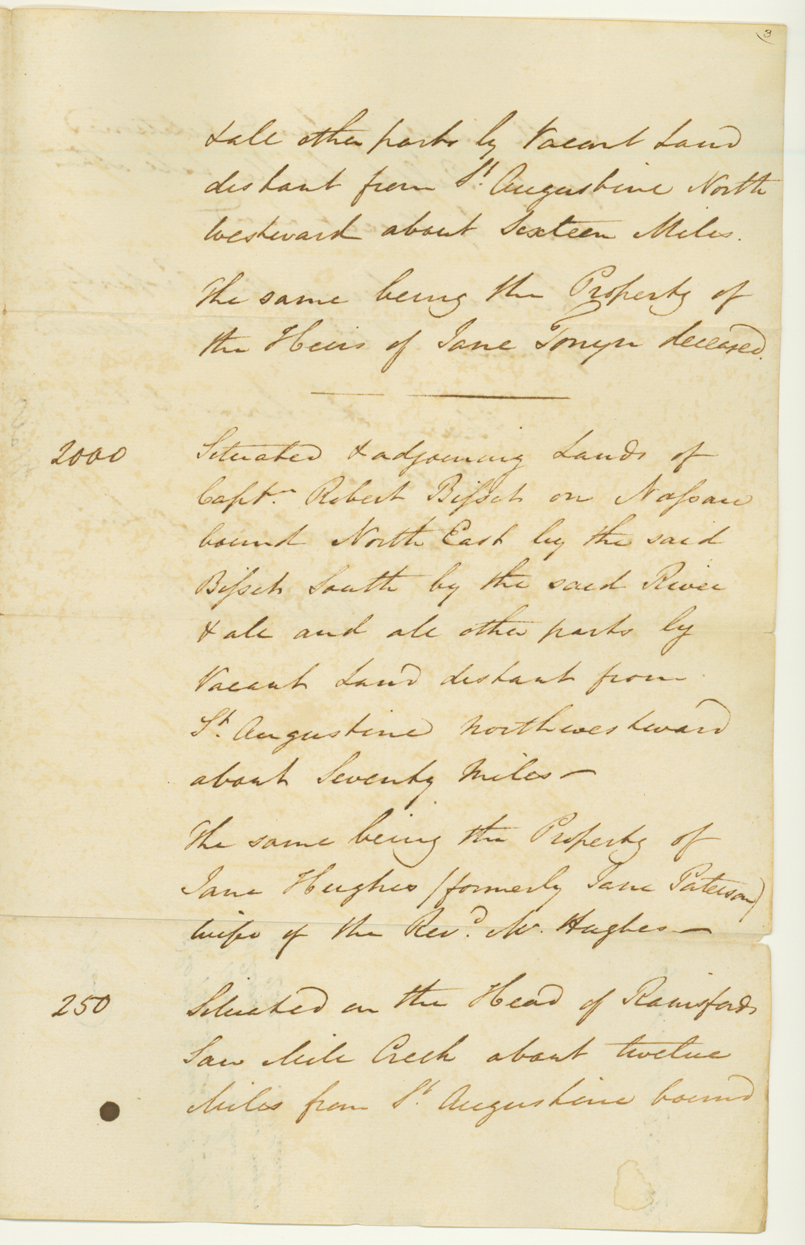 3
& all other parts by Vacant Land
distant from St. Augustine North
Westward about Sixteen Miles.
The same being the Property of
the Heirs of Jane Tonyn deceased.
2000 Situated & adjoining Lands of
Captn. Robert Bissets on Nassau
bound North East by the said
Bissets South by the said River
& all and all other parts by
Vacant Land distant from
St. Augustine northwestward
about Seventy Miles—
The same being the Property of
Jane Hughes (formerly Jane Paterson)
wife of the Revd. Mr. Hughes—
250 Situated on the Head of Rainsfords
Saw Mile Creek about twelve
Miles from St. Augustine bound